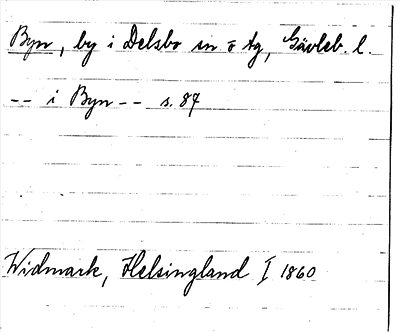 Byn, by i Delsbo sn o tg, Gävleb. l.
-- i Byn -- s. 87
Widmark, Helsingland I 1860